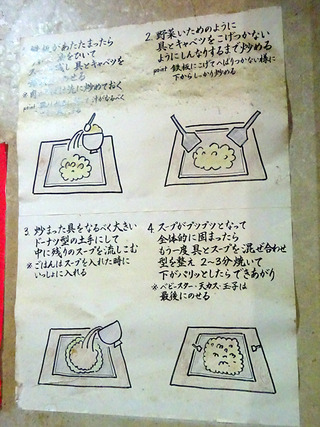 板があたたまったら
をひいて
し 具とキャベツを
せる
に炒めておく
2. 野菜いためのように
具とキャベツをこげつかない
ようにしんなりするまで炒める
point 鉄板にこげてへばりつかない様に
下からしっかり炒める
3. 炒まった具をなるべく大きい
ドーナツ型の土手にして
中に残りのスープを流しこむ
※ごはんはスープを入れた時に
いっしょに入れる
4. スープがプツプツとなって
全体的に固まったら
もう一度 具とスープを混ぜ合わせ
型を整え 2〜3分焼いて
下がパリッとしたらできあがり
※ベビースター・天カス・玉子は
最後にのせる